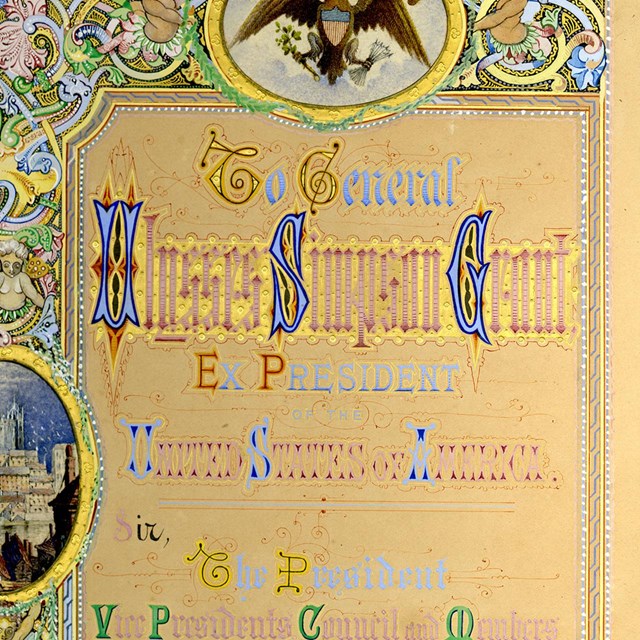 To General
Ulysses Simpson Grant
Ex President
OF THE
United States of America.
Sir,
The President
Vice Presidents Council and Members